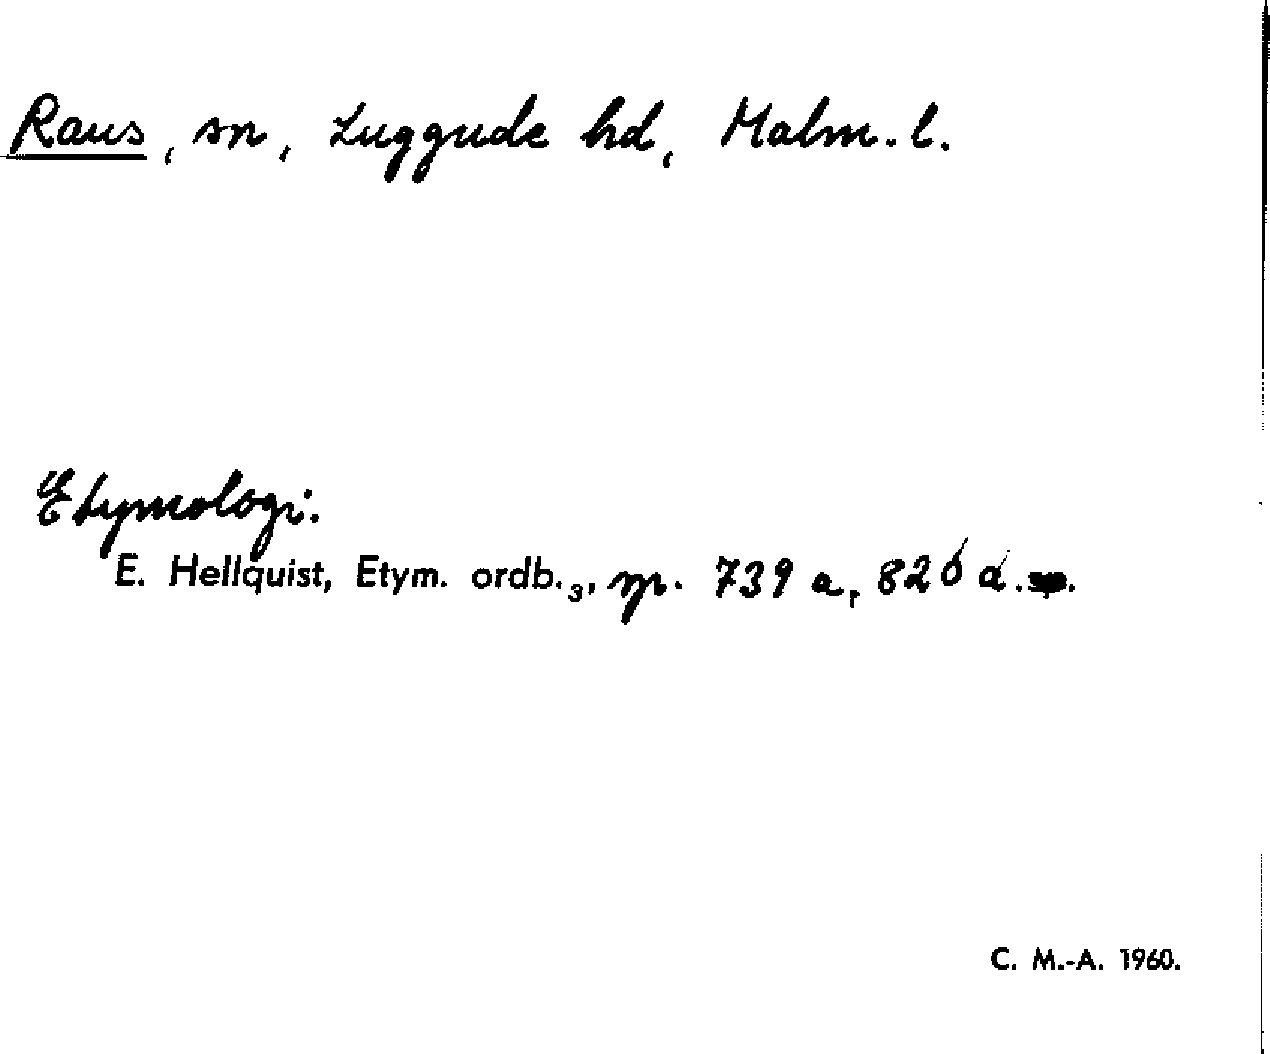 Raus, sn, Luggude hd, Malm. l.
Etymologi:
E. Hellquist, Etym. ordb.₃, sp. 739 a, 826 a.
C. M.-A. 1960.